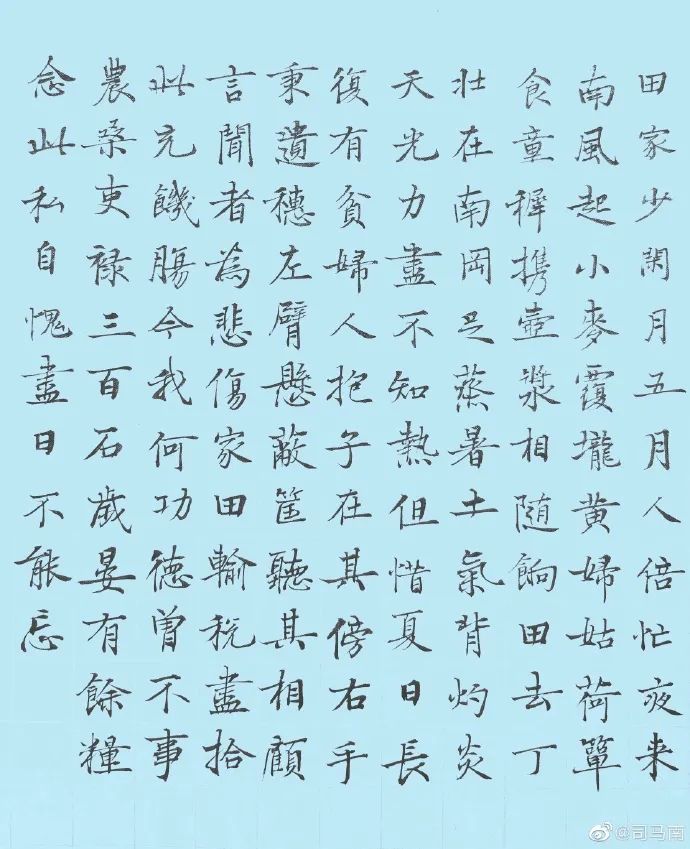 田家少閑月五月人倍忙夜来
南風起小麥覆壠黄婦姑荷簞
食童穉携壺漿相随餉田去丁
壯在南岡足蒸暑土氣背灼炎
天光力盡不知熱但惜夏日長
復有貧婦人抱子在其傍右手
秉遺穗左臂懸蔽筐聽其相顧
言聞者為悲傷家田輸税盡拾
此充饑腸今我何功德曾不事
農桑吏禄三百石歲晏有餘糧
念此私自愧盡日不能忘
@司马南